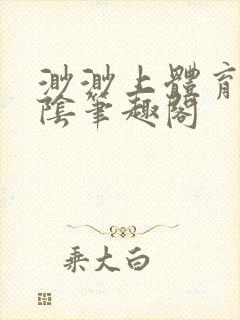 渺渺上體育
陰筆趣閣
乘大白